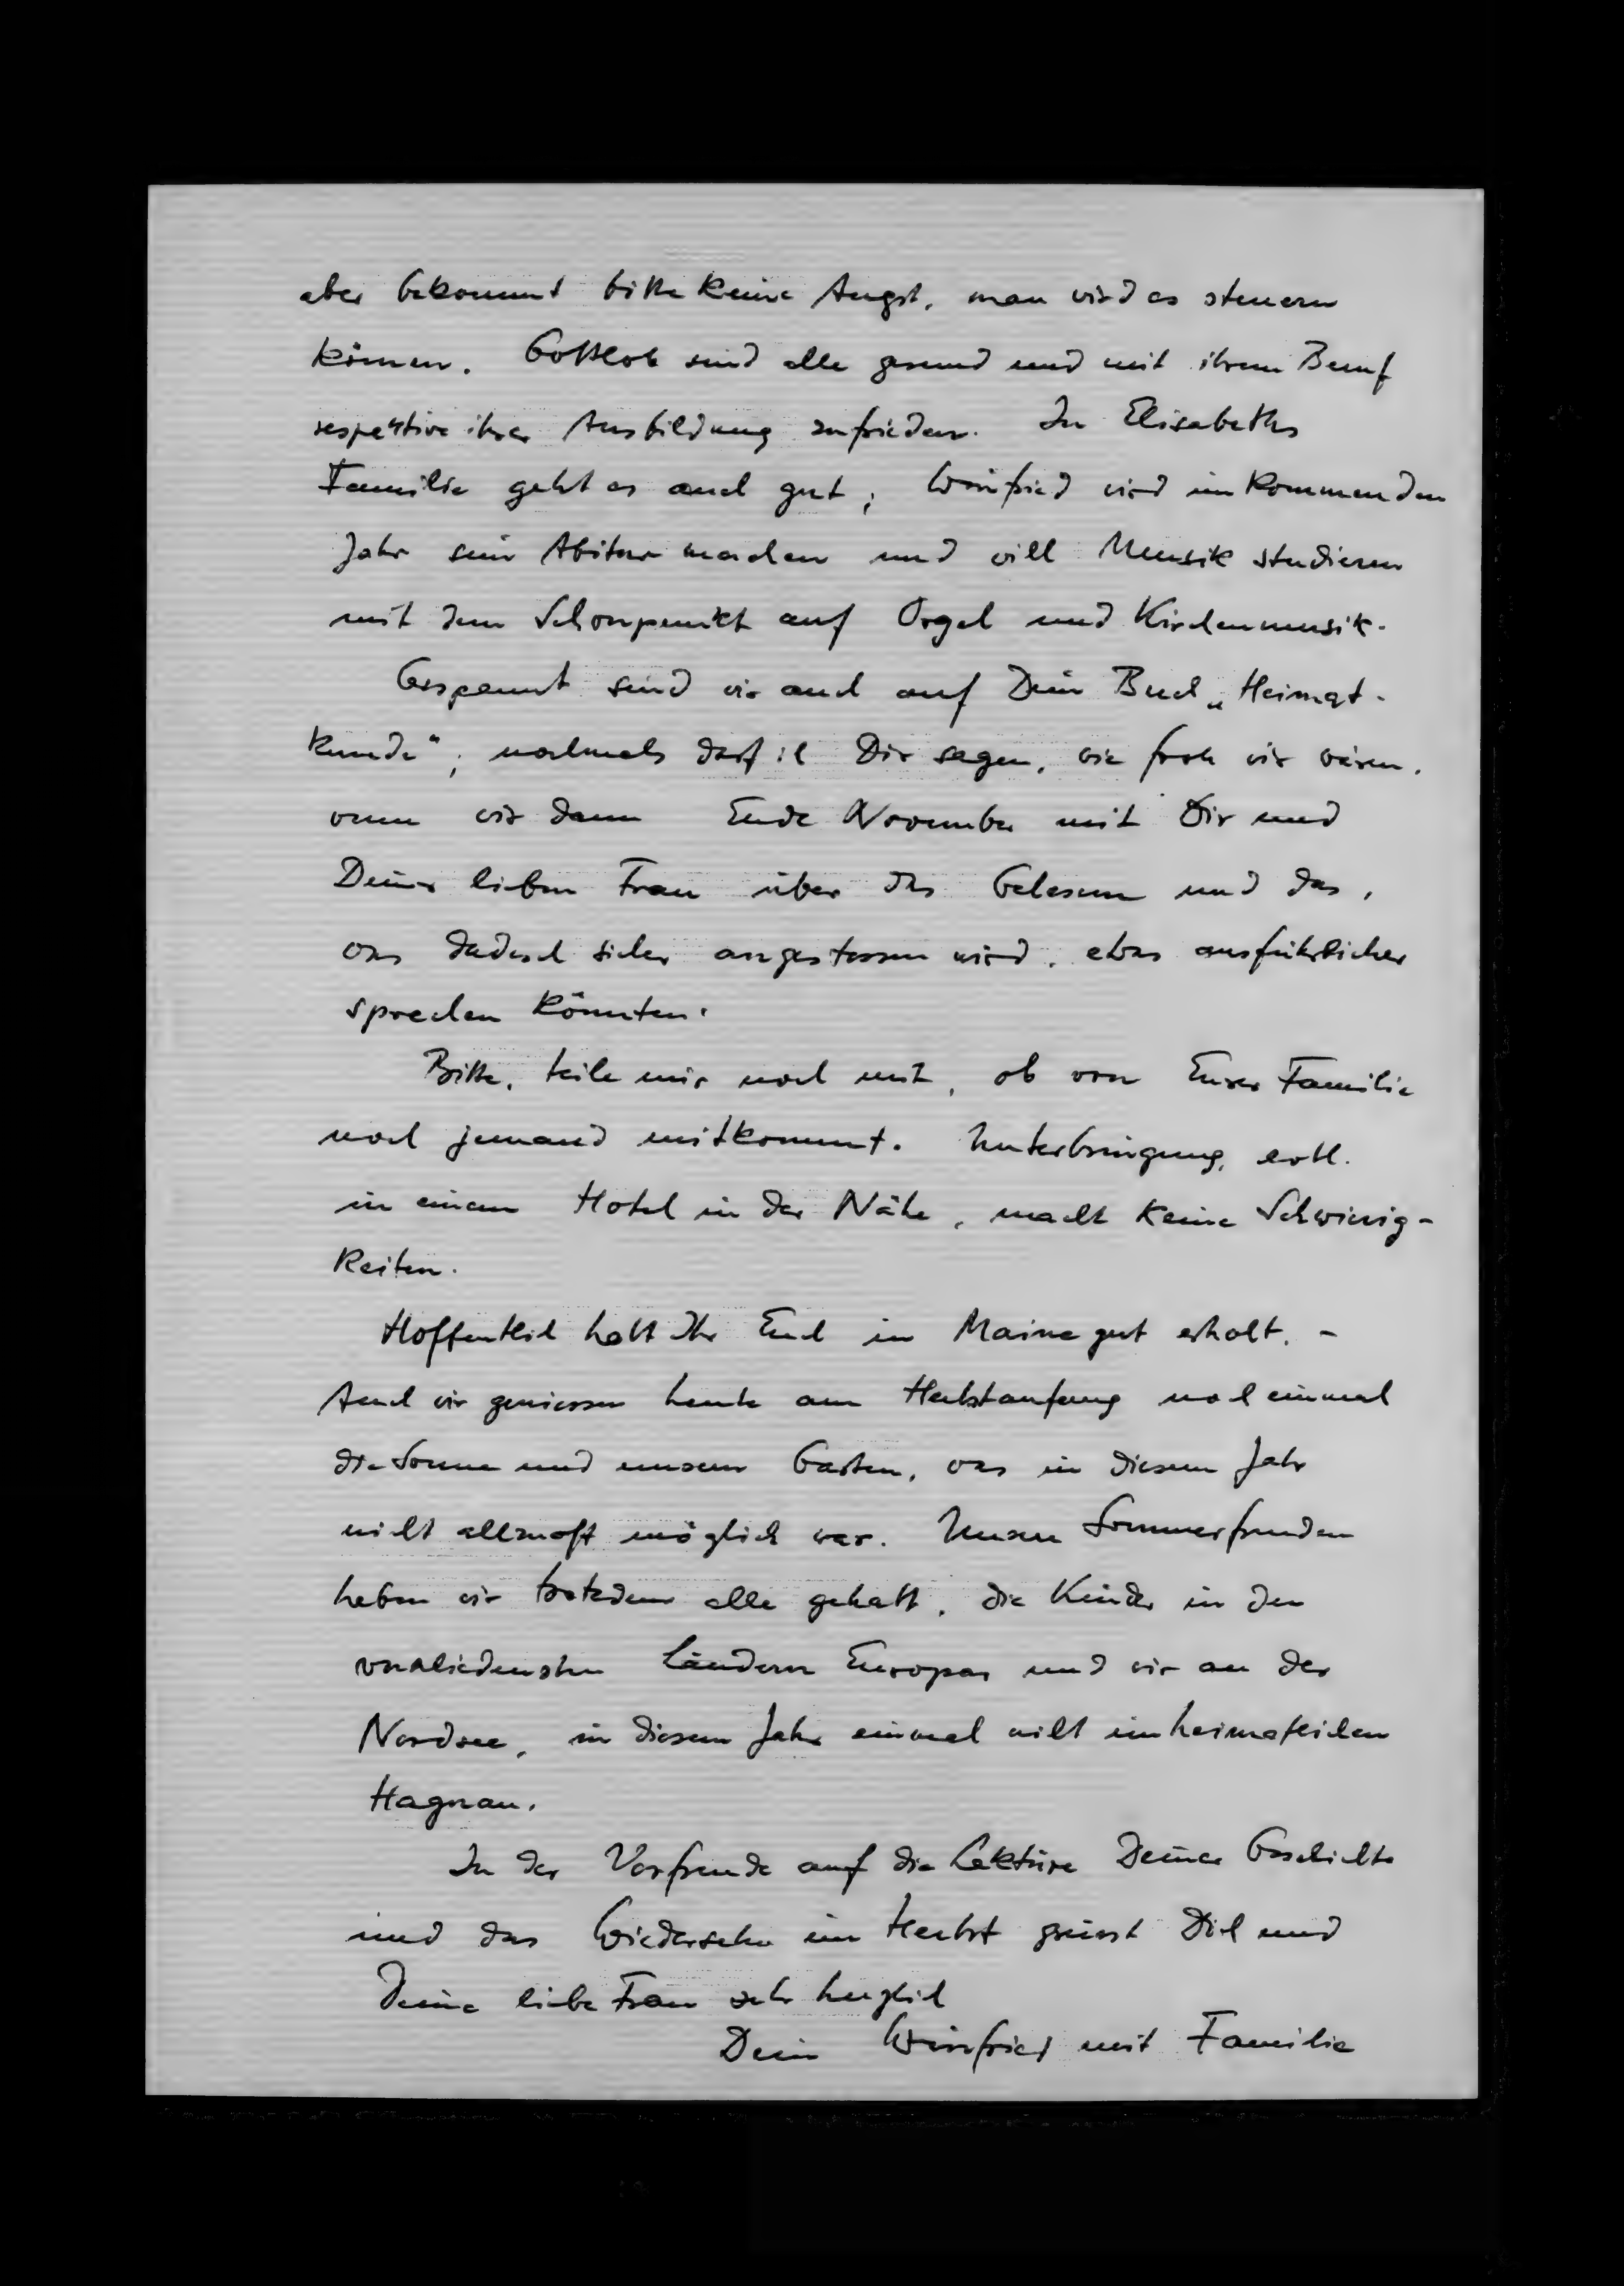 aber bekommt bitte keine Angst, man wird es steuern
können. Gottlob sind alle gesund und mit ihrem Beruf
respektive ihrer Ausbildung zufrieden. In Elisabeths
Familie geht es auch gut; Winfried wird im kommenden
Jahr sein Abitur machen und will Musik studieren
mit dem Schwerpunkt auf Orgel und Kirchenmusik.
Gespannt sind wir auch auf Dein Buch „Heimat-
kunde"; nochmals darf ich Dir sagen, wie froh wir wären,
wenn wir dann Ende November mit Dir und
Deiner lieben Frau über das Gelesene und das,
was dadurch sicher angestossen wird, etwas ausführlicher
sprechen könnten.
Bitte, teile mir noch mit, ob von Eurer Familie
noch jemand mitkommt. Unterbringung, evtl.
in einem Hotel in der Nähe, macht keine Schwierig-
keiten.
Hoffentlich habt Ihr Euch in Maine gut erholt. -
Auch wir geniessen heute am Herbstanfang noch einmal
die Sonne und unseren Garten, was in diesem Jahr
nicht allzuoft möglich war. Unsere Sommerfreuden
haben wir trotzdem alle gehabt, die Kinder in den
verschiedensten Ländern Europas und wir an der
Nordsee, in diesem Jahr einmal nicht im heimatlichen
Hagnau.
In der Vorfreude auf die Lektüre Deiner Geschichte
und das Wiedersehen im Herbst grüsst Dich und
Deine liebe Frau sehr herzlich
Dein Winfried mit Familie